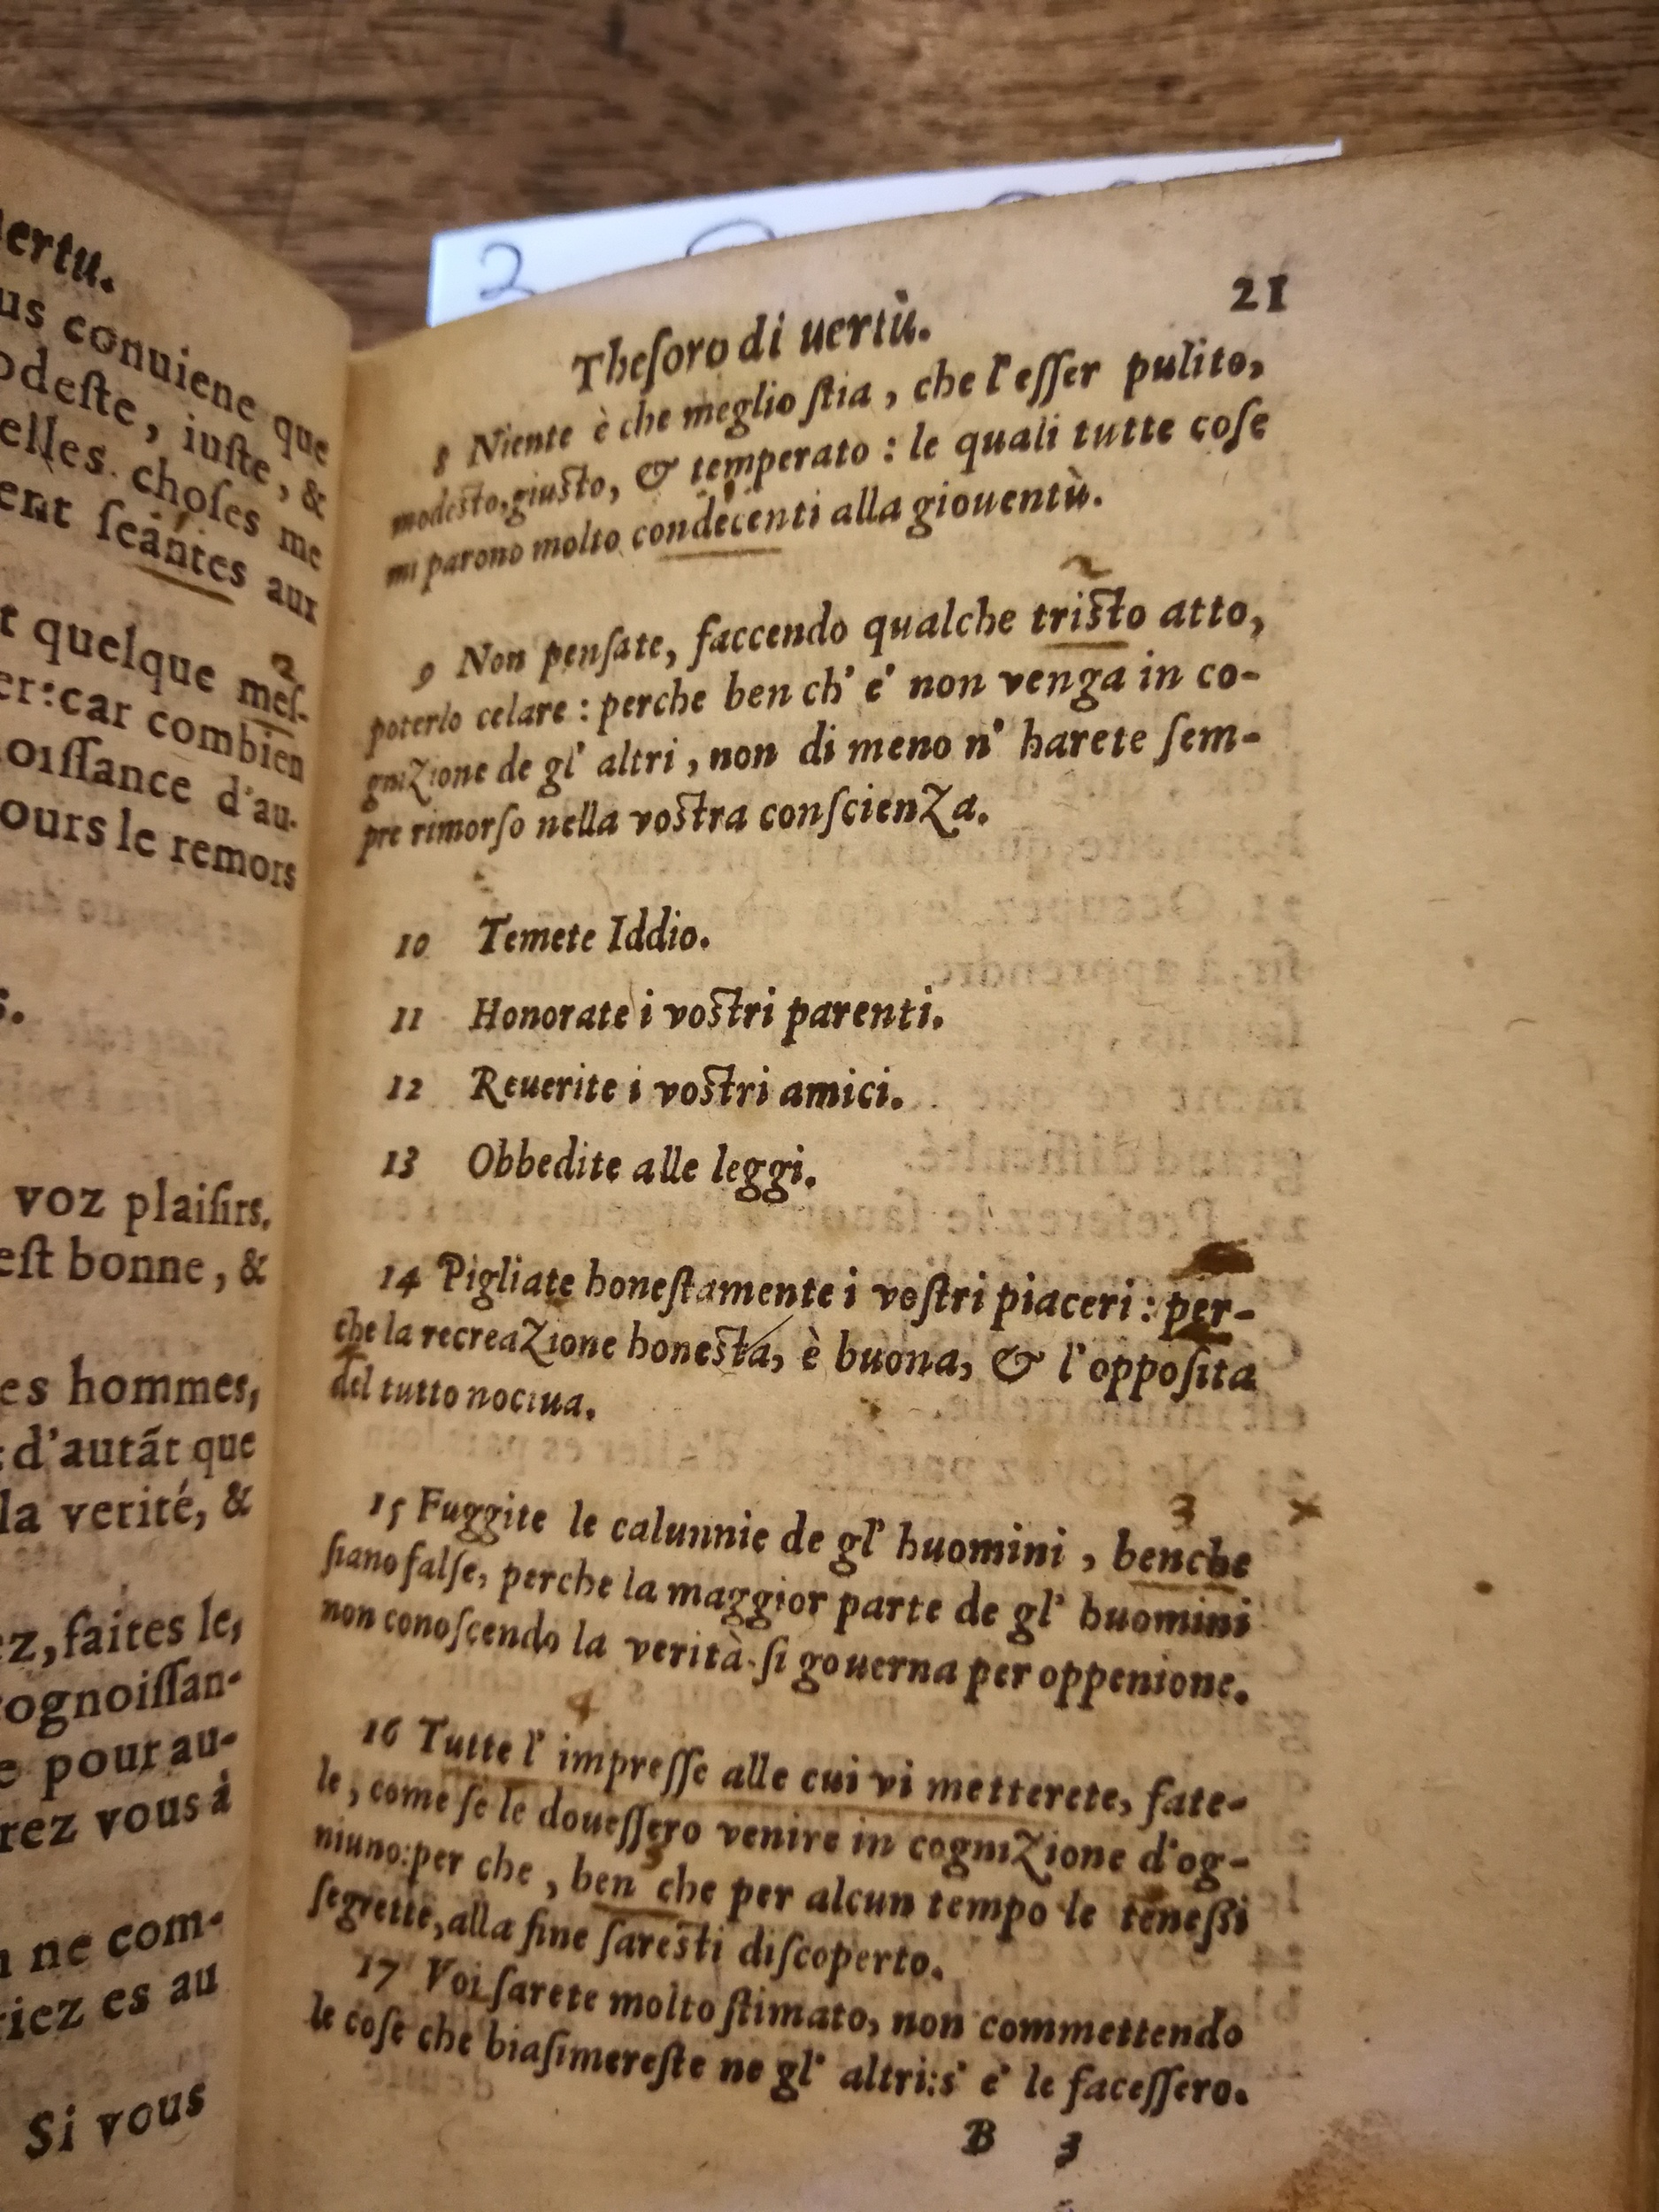 uertu.
us conuiene que
odeſte, iuſte, &
elles choſes me
ent ſeántes aux
t quelque meſ-
er: car combien
oiſſance d'au-
ours le remors
s.
voz plaiſirs,
eſt bonne, &
es hommes,
: d'autãt que
la verité, &
ez, faites le,
cognoiſſan-
e pour au-
rez vous à
n ne com-
riez es au
Si vous
2
21
Theſoro di uertù.
8 Niente è che meglio ſtia, che l'eſſer pulito,
modeſto, giuſto, & temperato : le quali tutte coſe
mi parono molto condecenti alla giouentù.
9 Non penſate, faccendo qualche triſto atto,
poterlo celare : perche ben ch' e' non venga in co-
gnizione de gl' altri, non di meno n' harete ſem-
pre rimorſo nella voſtra conſcienza.
10 Temete Iddio.
11 Honorate i voſtri parenti.
12 Reuerite i voſtri amici.
13 Obbedite alle leggi.
14 Pigliate honeſtamente i voſtri piaceri : per-
che la recreazione honeſta, è buona, & l'oppoſita
del tutto nociua.
3 x
15 Fuggite le calunnie de gl' huomini, benche
ſiano falſe, perche la maggior parte de gl' huomini
non conoſcendo la verità ſi gouerna per oppenione.
4
16 Tutte l' impreſſe alle cui vi metterete, fate-
le, come ſe le doueſſero venire in cognizione d'og-
niuno: per che, ben che per alcun tempo le teneſſi
ſegrette, alla fine ſareſti diſcoperto.
17 Voi ſarete molto ſtimato, non commettendo
le coſe che biaſimereſte ne gl' altri: s' e' le faceſſero.
B 3